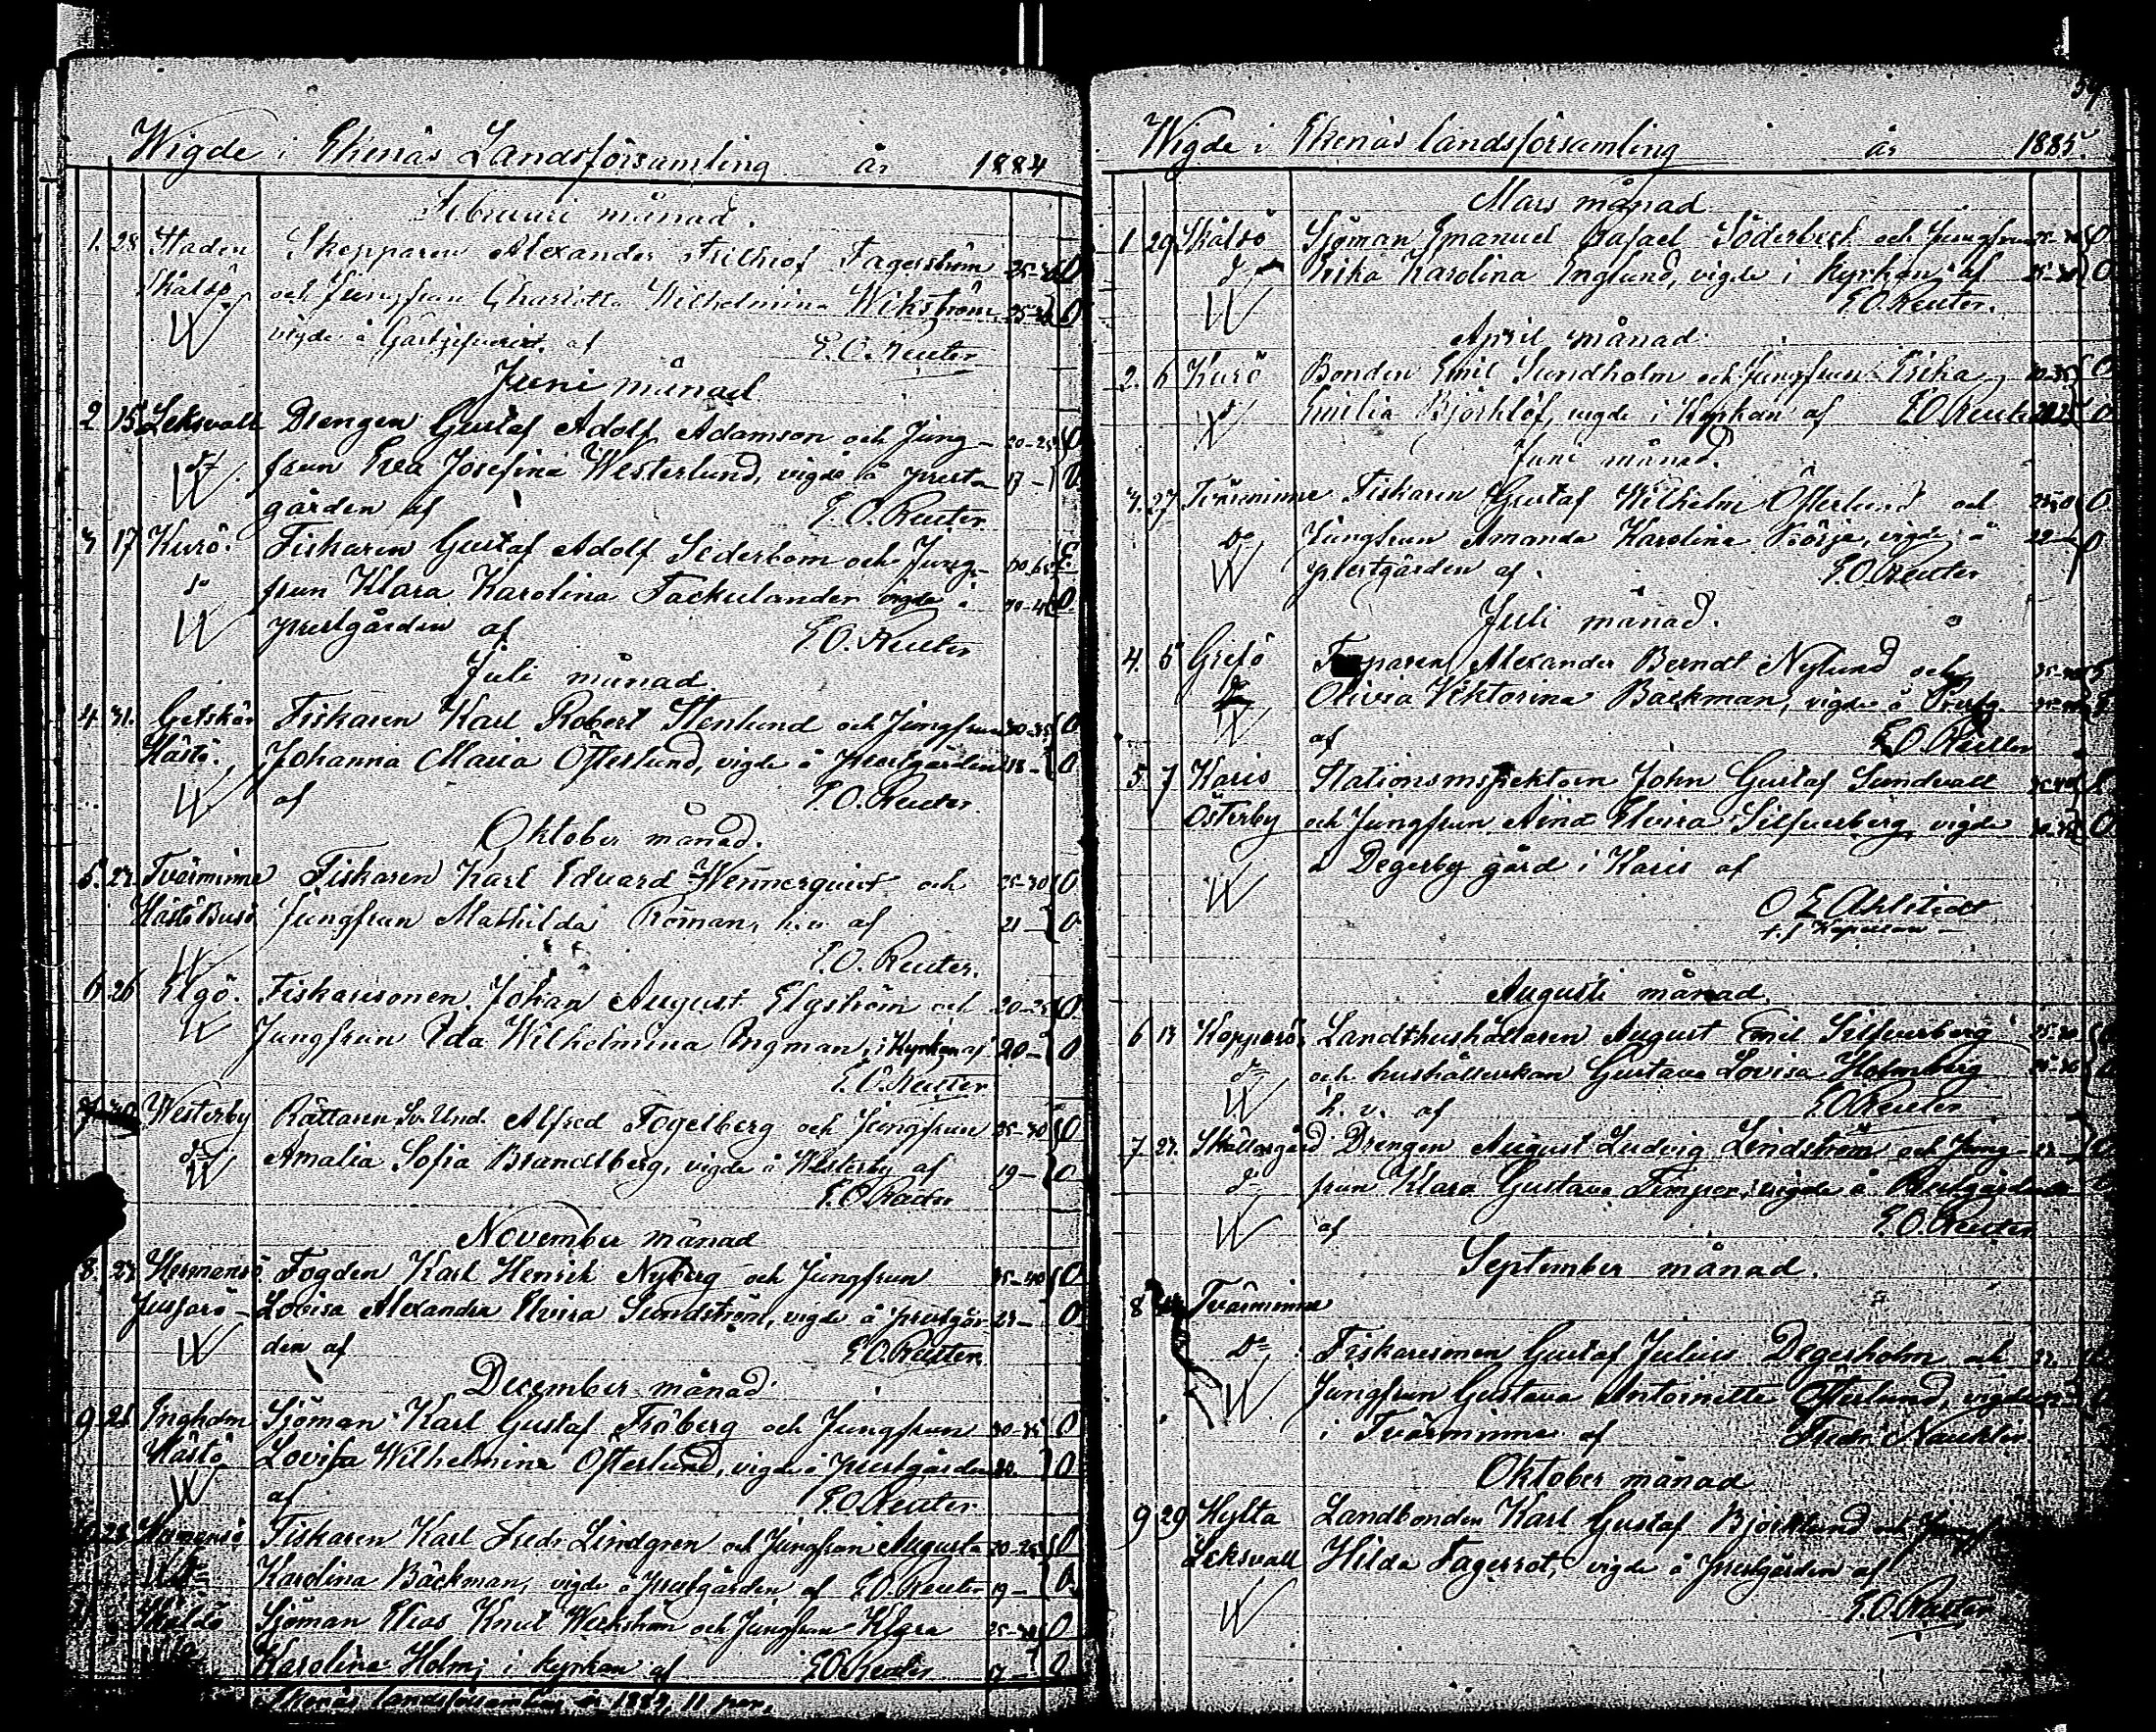 Wigde i Ekenäs Landsförsamling år 1884
Februari månad.
1. 28 Staden Skepparen Alexander Frithiof Fagerström 25-30 0
Skåldö och Jungfrun Charlotta Wilhelmina Wikström 25-30 0
vigde å Gästgifveriet af E. O. Reuter
Juni månad
2 15 Leksvall Drengen Gustaf Adolf Adamson och Jung- 20-25 0
do frun Eva Josefina Westerlund, vigde å presta 17- 0
gården af E. O. Reuter
3 17 Kurö. Fiskaren Gustaf Adolf Sederbom och Jung-
do frun Klara Karolina Tackulander vigde å 0
prestgården af E. O. Reuter
Juli månad
4. 31. Getskär Fiskaren Karl Robert Stenlund och Jungfrun 30-35 0
Hästö. Johanna Maria Öfterlund, vigde å prestgården 18- 0
af E. O. Reuter
Oktober månad.
5. Tvärminne Fiskaren Karl Edvard Wennerqvist och 25-30 0
Hästö Busö Jungfrun Mathilda Roman, h. v. af 21- 0
E. O. Reuter.
6 26 Elgö. Fiskaresonen Johan August Elgström och 20-25 0
Jungfrun Ida Wilhelmina Ingman, i Kyrkan af 20- 0
E. O. Reuter
7 Westerby Rättaren Alfred Fogelberg och Jungfrun 25-30 0
do Amalia Sofia Brandtberg, vigde å Westerby af 19- 0
E. O. Reuter
November månad
8. Hermansö Fogden Karl Henrik Nyberg och Jungfrun 35-40 0
Jussarö Lovisa Alexandra Elvira Sundström, vigde å prestgår- 0
den af E. O. Reuter
December månad
9 Ingholm Sjöman Karl Gustaf Fröberg och Jungfrun 30-35 0
Hästö Lovisa Wilhelmina Öfterlund, vigde å prestgården 0
af E. O. Reuter
Fiskaren Karl Fredr Lindgren och Jungfrun Augusta 20-25 0
Karolina Bäckman, vigde å prestgården af E. O. Reuter 19- 0
Skåldö Sjöman Elias Knut Weckström och Jungfrun Klara 25-30 0
Karolina Holm, i kyrkan af E. O. Reuter 17- 0
Ekenäs landsförsamling år 1884, 11 par.
Wigde i Ekenäs landsförsamling år 1885.
Mars månad
1 29 Skåldö Sjöman Emanuel Rafael Söderbeck och Jungfrun 0
do Erika Karolina Englund, vigde i kyrkan af 25-30 0
E. O. Reuter.
April månad
2. 6 Kurö Bonden Emil Sundholm och Jungfrun Erika 30-35 0
do Emilia Björklöf, vigde i Kyrkan af E. O. Reuter 0
Juni månad.
3. 27 Tvärminne Fiskaren Gustaf Wilhelm Öfterlund och 0
do Jungfrun Amanda Karolina Börje, vigde å 0
prestgården af E. O. Reuter
Juli månad.
4. 5 Grefö Alexander Berndt Nylund och
do Olivia Viktorina Bäckman, vigde å Prestg.
af E. O. Reuter
5. 7 Karis Stationsinspektorn John Gustaf Sundvall
Österby och Jungfrun Aina Elvira Silfverberg vigde 0
å Degerby gård i Karis af
O E Ahlstedt
t. f. Kapellan
Augusti månad
6 Kopparö Landthushållaren August Emil Silfverberg
do och hushållerskan Gustava Lovisa Holmberg
h. v. af E. O. Reuter
7 Skällargård Drengen August Ludvig Lindström och Jung-
do frun Klara Gustava Timper, vigde å Prestgården
af E. O. Reuter
September månad.
8 Tvärminne
do Fiskaresonen Gustaf Julius Degerholm och
Jungfrun Gustava Antoinette Öfterlund, vigde
i Tvärminne af Fredr
Oktober månad
9 29 Hylta Landbonden Karl Gustaf Björklund och
Leksvall Hilda Fagerrot, vigde å prestgården af
E. O. Reuter